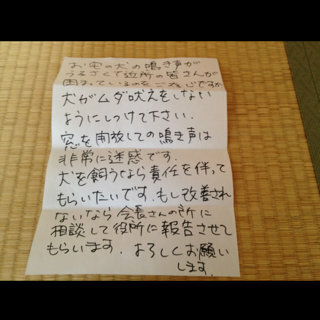 お宅の犬の鳴き声が
うるさくて近所の皆さんが
困れているのをご存じですか
犬がムダ吠えをしない
ようにしつけて下さい.
窓を開放しての鳴き声は
非常に迷惑です.
犬を飼うなら責任を伴って
もらいたいです.もし改善され
ないなら会長さんの所に
相談して役所に報告させて
もらいます. よろしくお願い
します.